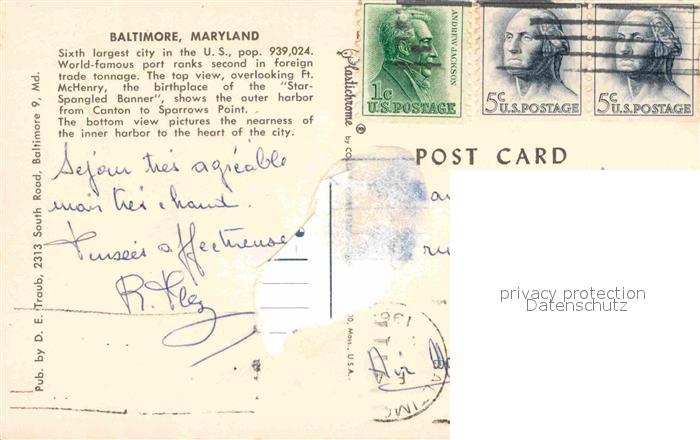 BALTIMORE, MARYLAND
Sixth largest city in the U. S., pop. 939,024.
World-famous port ranks second in foreign
trade tonnage. The top view, overlooking Ft.
McHenry, the birthplace of the "Star-
Spangled Banner", shows the outer harbor
from Canton to Sparrows Point.
The bottom view pictures the nearness of
the inner harbor to the heart of the city.
Séjour très agréable
mais très chaud.
Pensées affectueuses
R.
Pub. by D. E. Traub, 2313 South Road, Baltimore 9, Md.
Plastichrome ® by CO
10, Mass., U.S.A.
ANDREW JACKSON
1c
U.S. POSTAGE
5c
U.S. POSTAGE
5c
U.S. POSTAGE
POST CARD
Air
privacy protection
Datenschutz